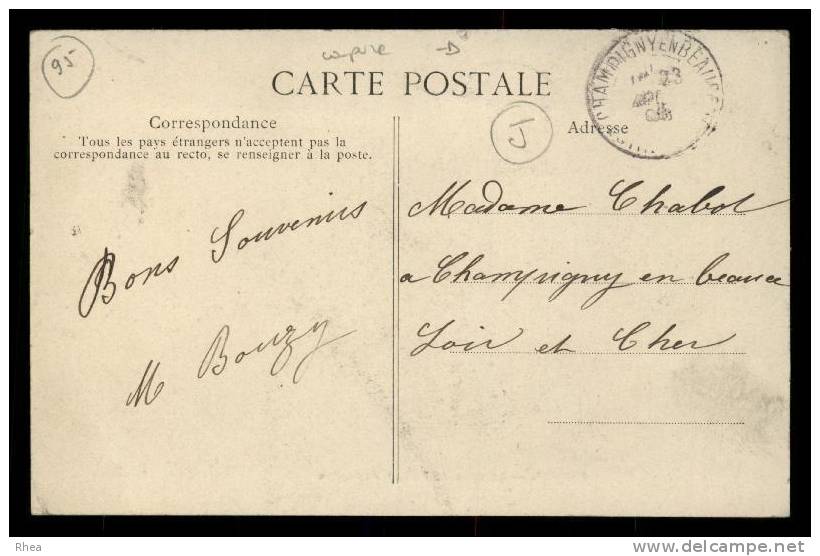 95
CARTE POSTALE
CHAMPIGNY EN BEAUCE
23
J
Correspondance
Tous les pays étrangers n'acceptent pas la
correspondance au recto, se renseigner à la poste.
Adresse
Bons Souvenirs
M Bouzy
Madame Chabot
a Champigny en beauce
Loir et Cher
Rhea
www.delcampe.net